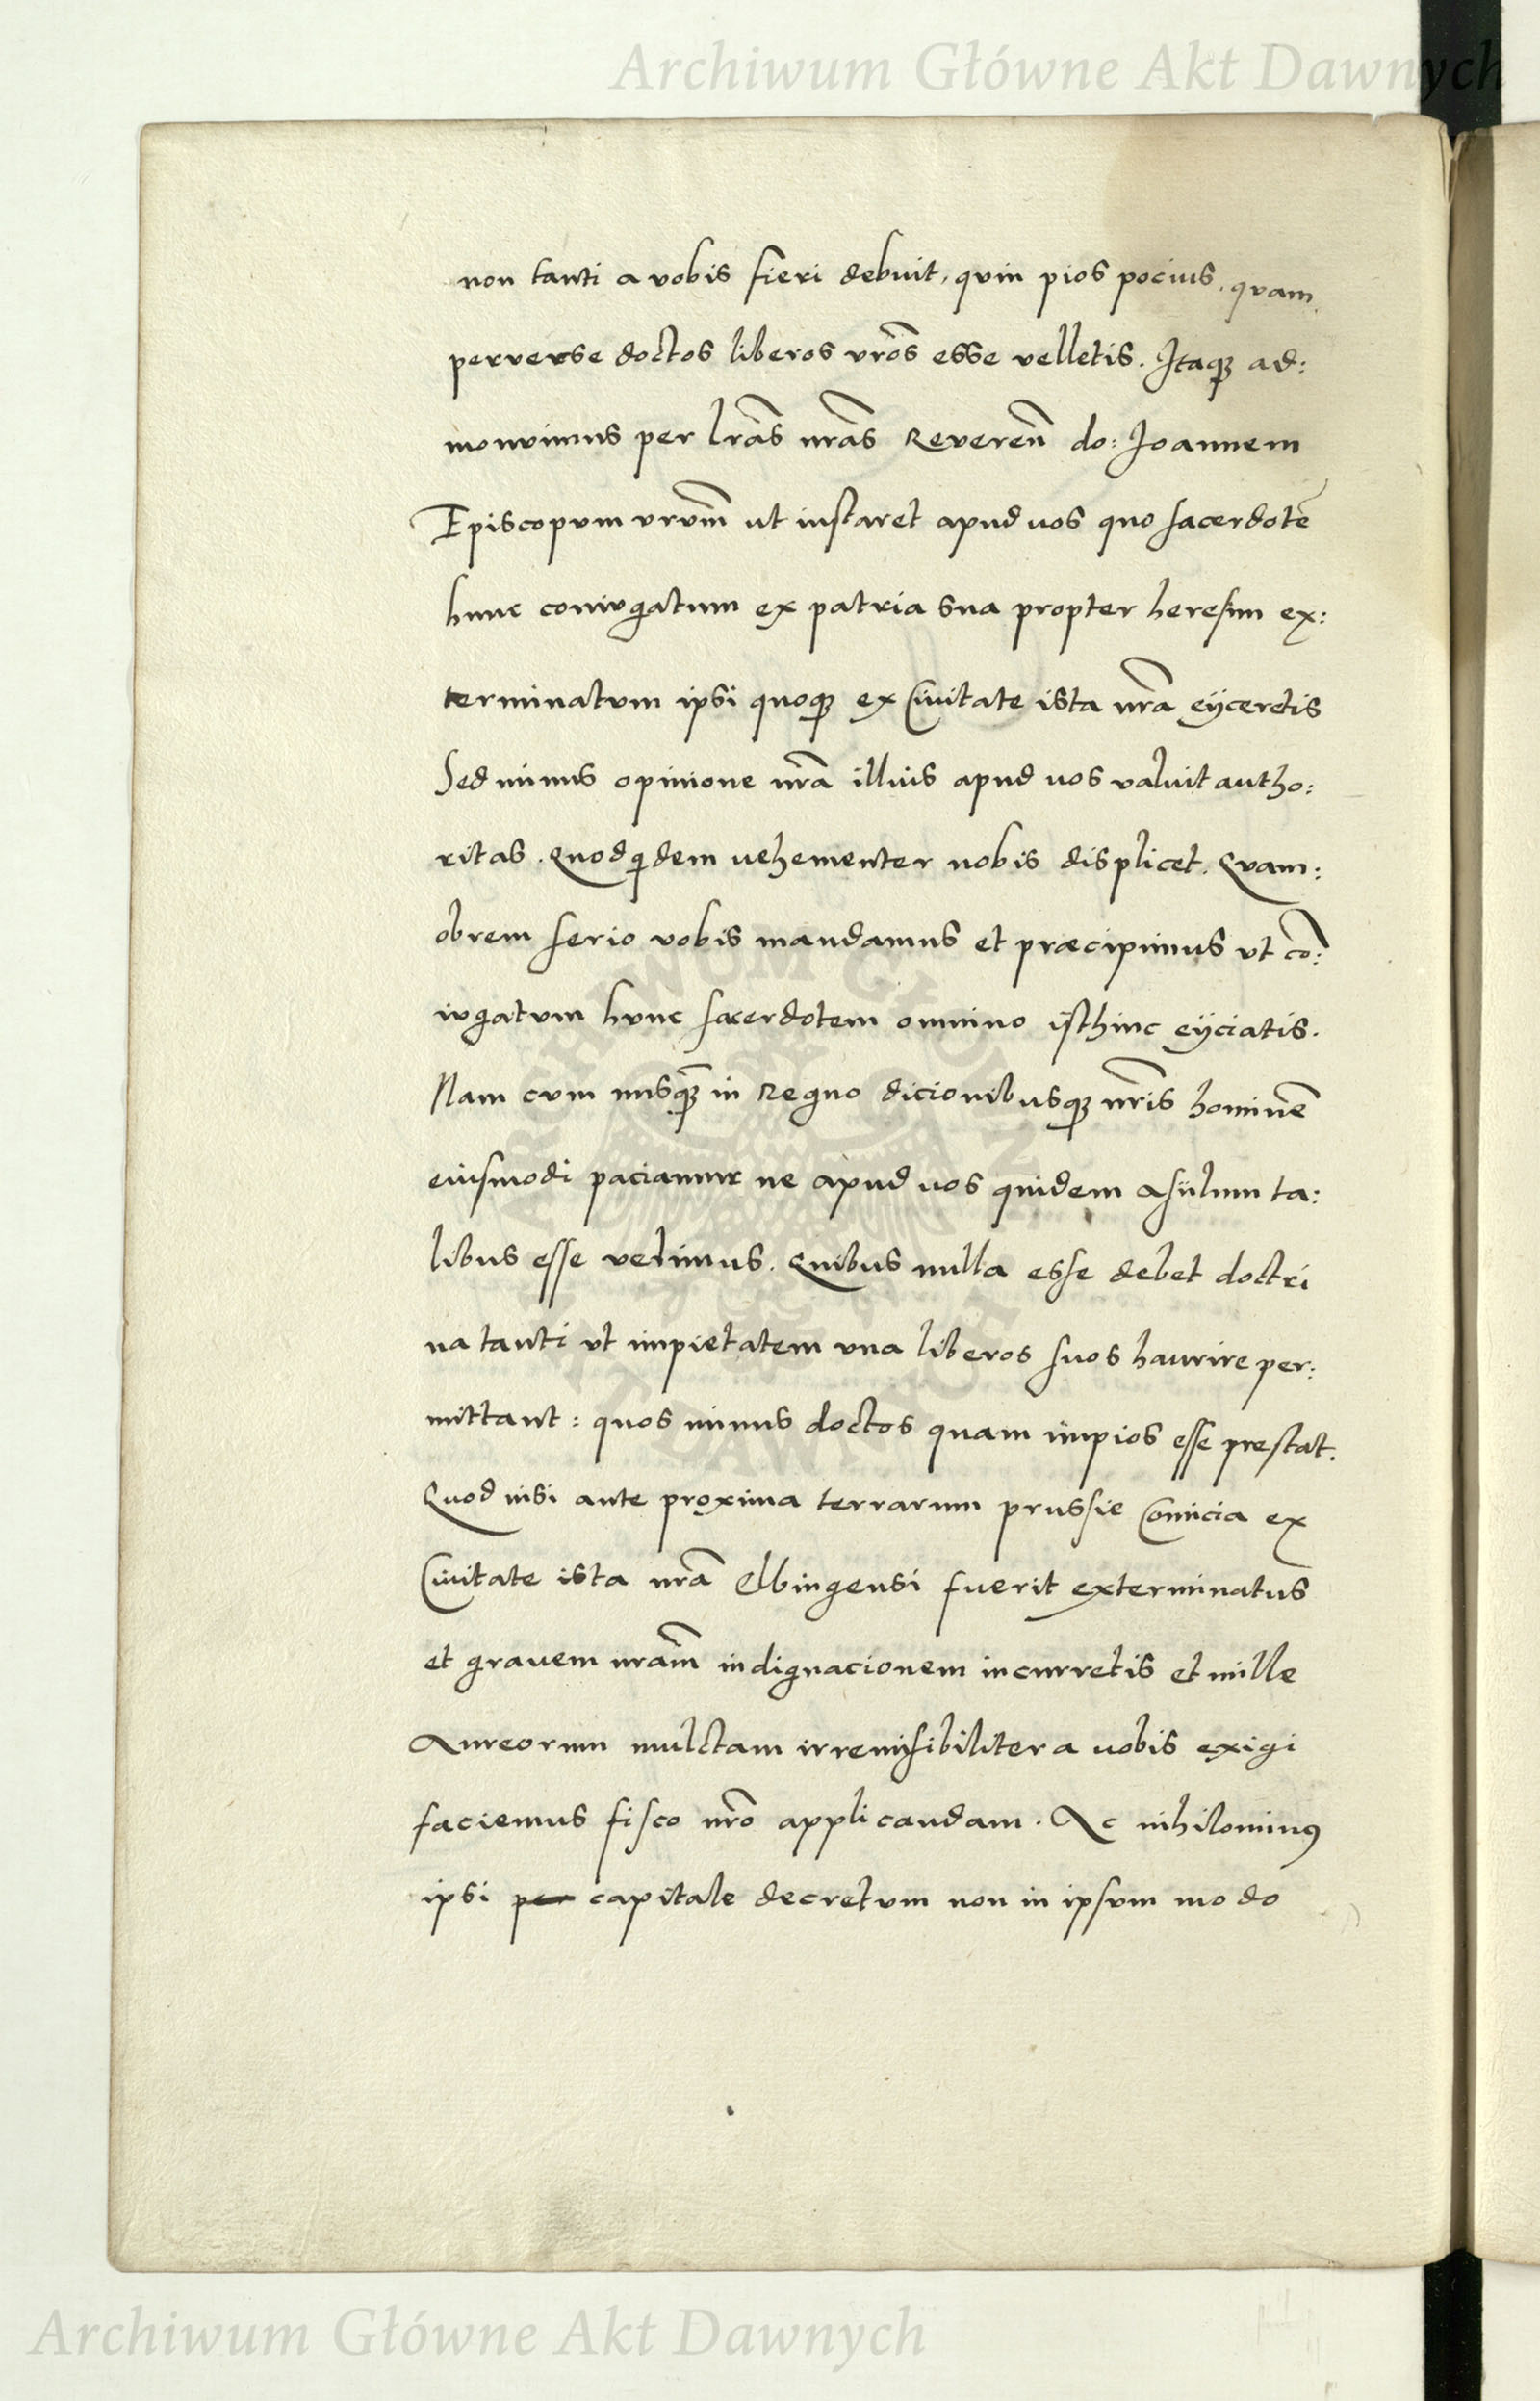 Archiwum Główne Akt Dawnych
non tanti a vobis fieri debuit, quin pios pocius, quam
perverse doctos liberos vr̃os esse velletis. Itaqꝫ ad:
monvimus per lr̃as nr̃as Reveren̄ do: Joannem
Episcopvm vrvm̃ ut instaret apud uos quo sacerdotē
hunc conivgatum ex patria sua propter heresim ex:
terminatvm ipsi quoqꝫ ex Civitate ista nr̃a eijceretis
Sed minus opinione nr̃a illius apud uos valuit autho:
ritas. Quod qdem vehementer nobis displicet. Qvam:
obrem serio vobis mandamus et præcipimus vt cō:
ivgatvm hvnc sacerdotem omnino isthinc eijciatis.
Nam cvm nusqꝫ̃ in Regno dicionibusqꝫ nr̃is hominē
eiusmodi paciamur ne apud uos quidem asÿlum ta:
libus esse velimus. Quibus nulla esse debet doctri
na tanti vt impietatem vna liberos suos haurire per:
mittant: quos minus doctos quam impios esse prestat.
Quod nisi ante proxima terrarum prussie Comicia ex
Civitate ista nr̃a Elbingensi fuerit exterminatus
et gravem nram̃ indignacionem incurretis et mille
Aureorum mulctam irremisibiliter a vobis exigi
faciemus fisco nr̃o applicandam. Ac nihilominꝰ
ipsi capitale decretvm non in ipsvm modo
Archiwum Główne Akt Dawnych